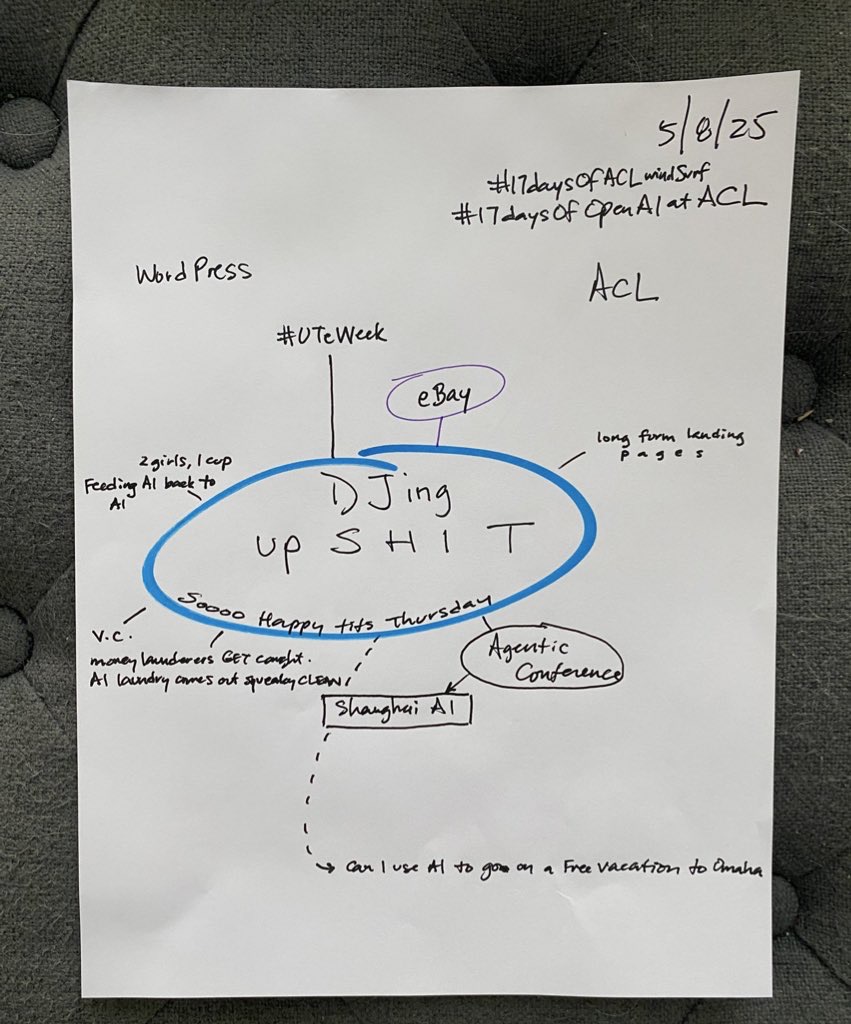 5/8/25
#17daysOfACLwindSurf
#17daysOf OpenAI at ACL
WordPress
ACL
#UTeWeek
eBay
long form landing
pages
2 girls, 1 cup
Feeding AI back to
AI
DJing
up SHIT
Soooo Happy tits Thursday
V.C.
money launderers GET caught.
AI laundry comes out squeaky CLEAN!
Agentic
Conference
Shanghai AI
Can I use AI to go on a Free vacation to Omaha